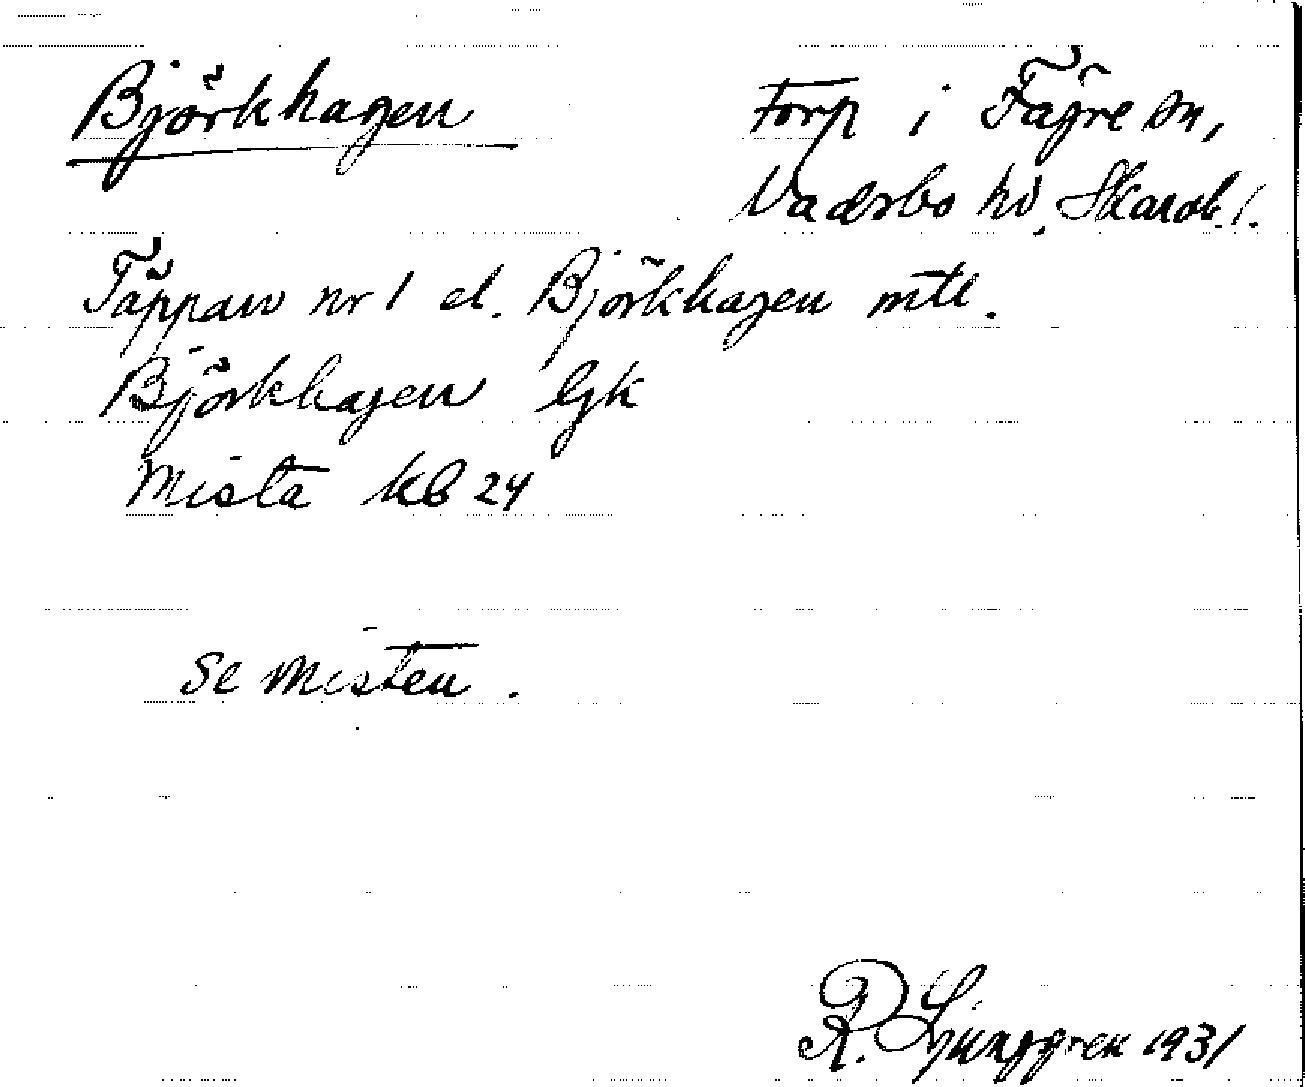 Björkhagen
Torp i Fägre sn,
Vadsbo hd, Skarab. l.
Täppan nr 1 el. Björkhagen mtl.
Björkhagen Gk
Mista kb 24
Se Misten.
R. Ljunggren 1931